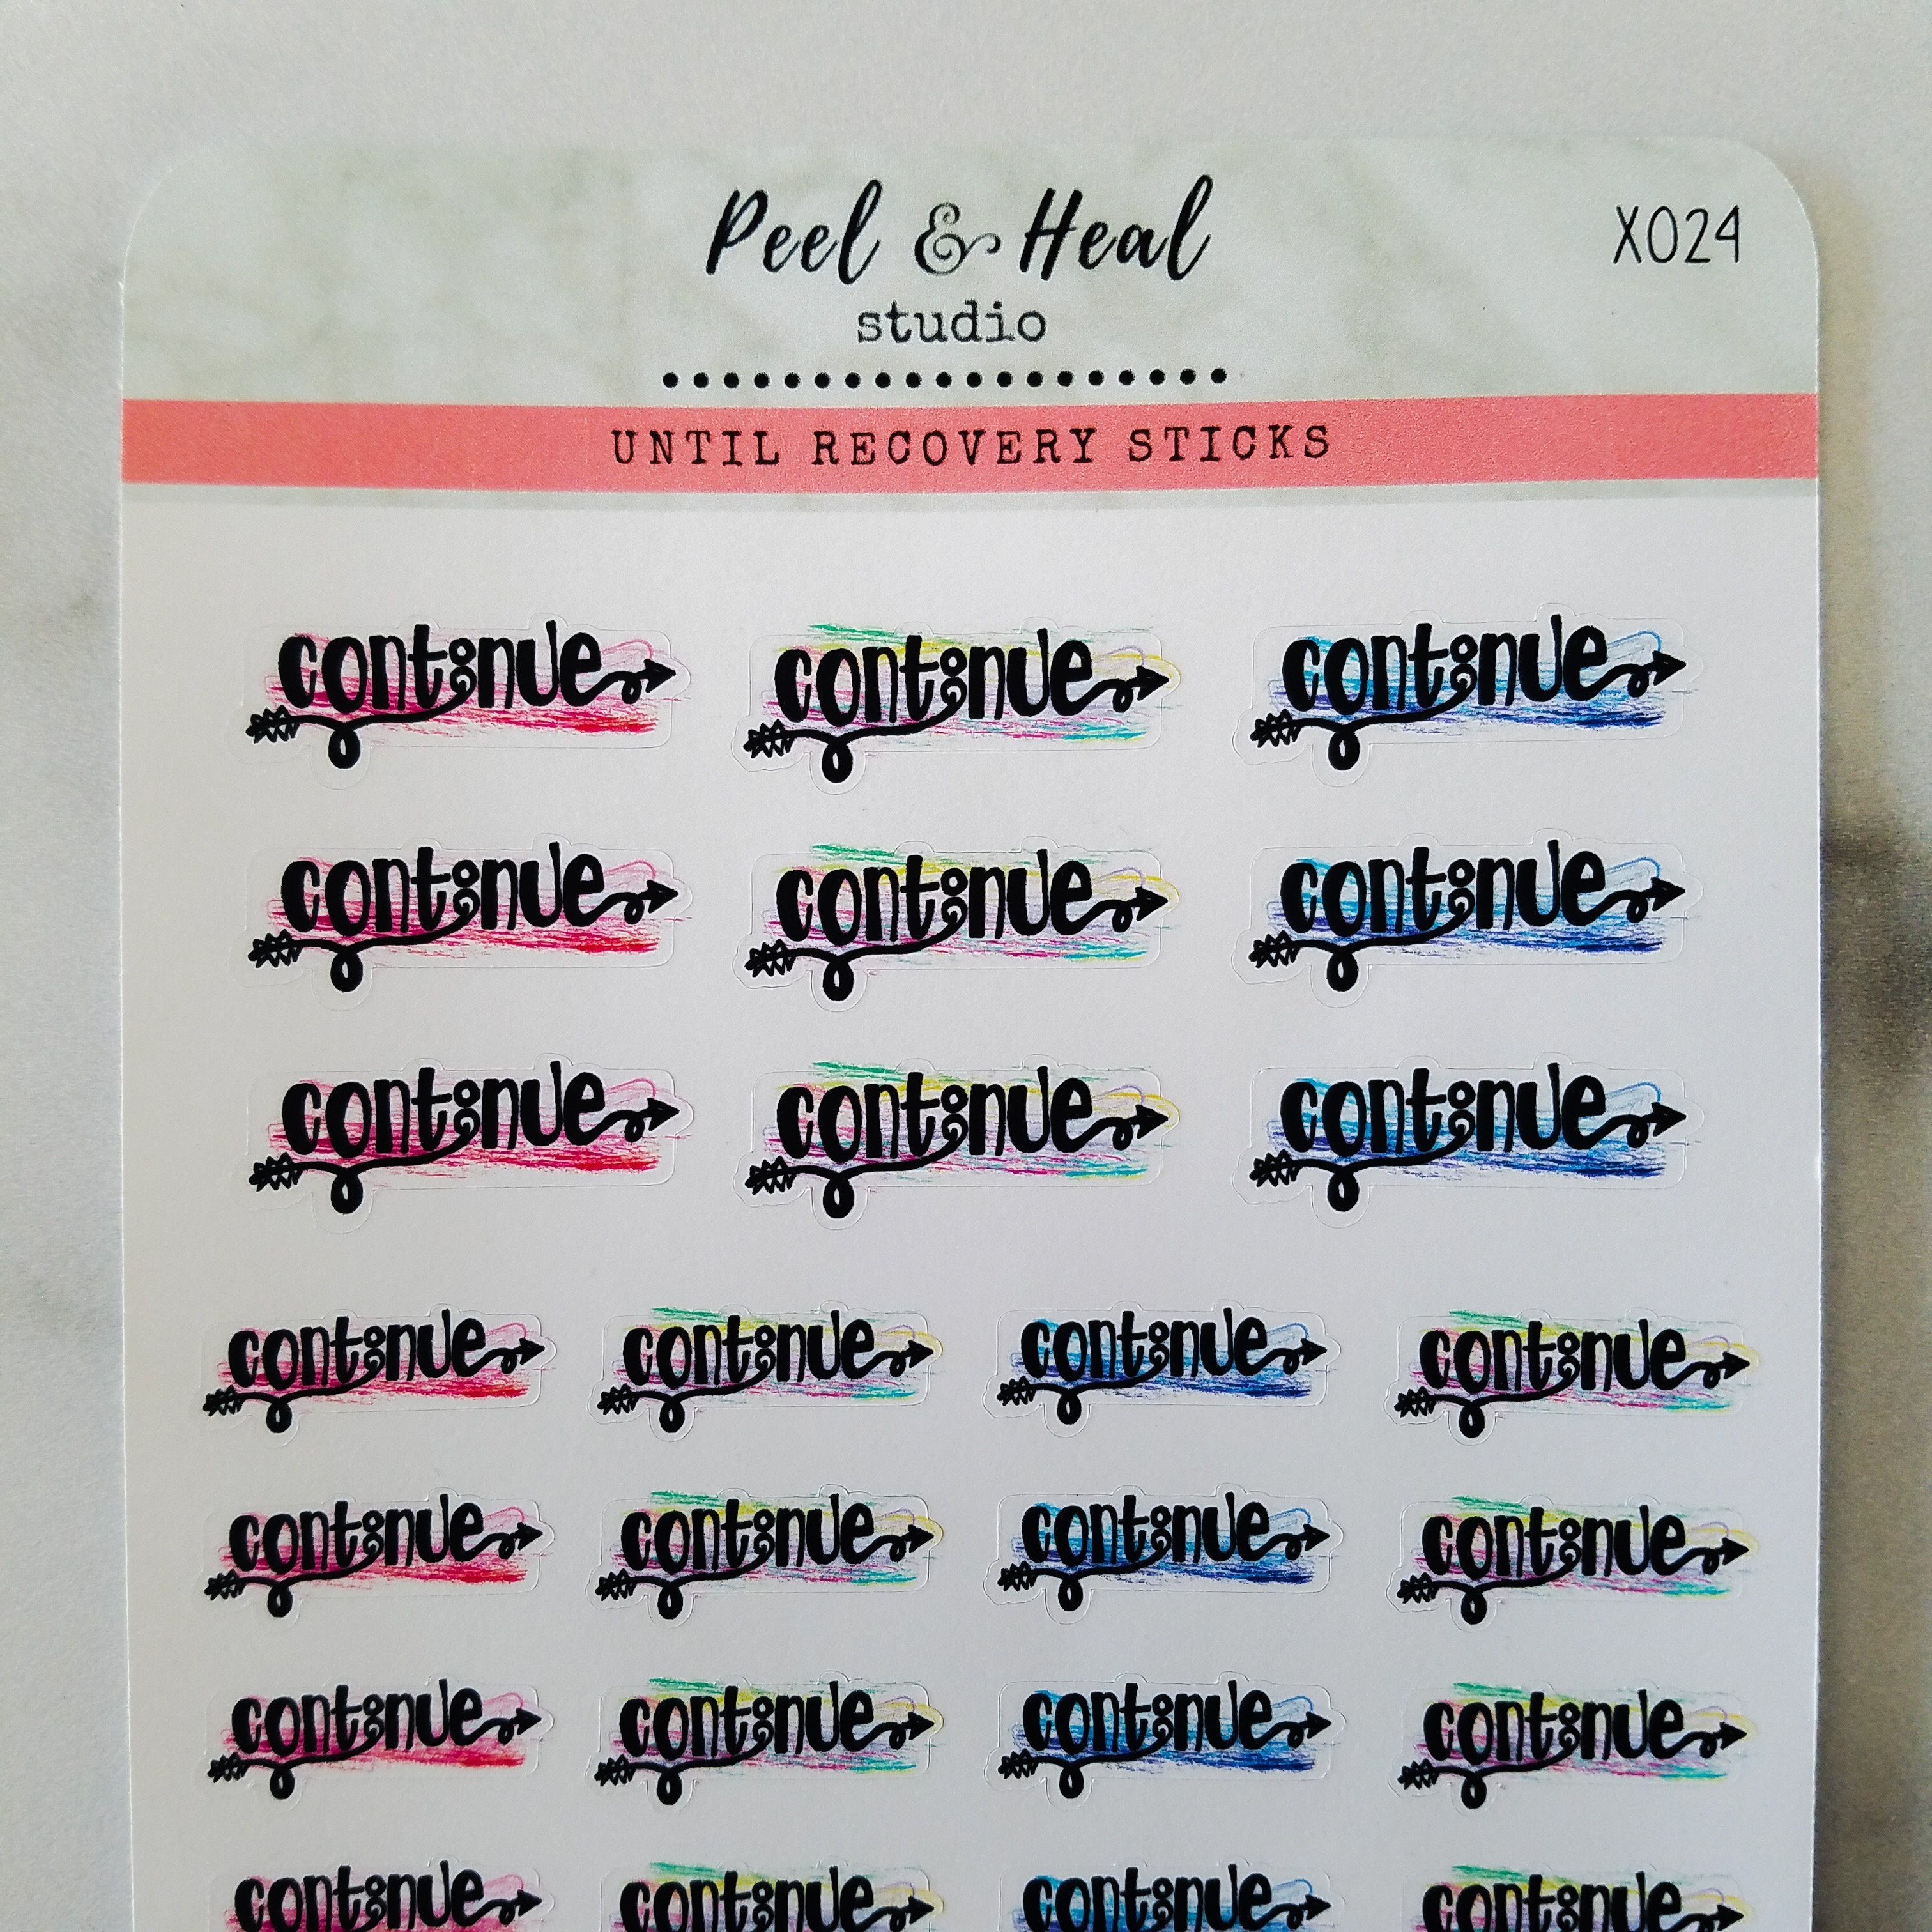 Peel & Heal
X024
studio
UNTIL RECOVERY STICKS
continue continue continue
continue continue continue
continue continue continue
continue continue continue continue
continue continue continue continue
continue continue continue continue
continue continue continue continue